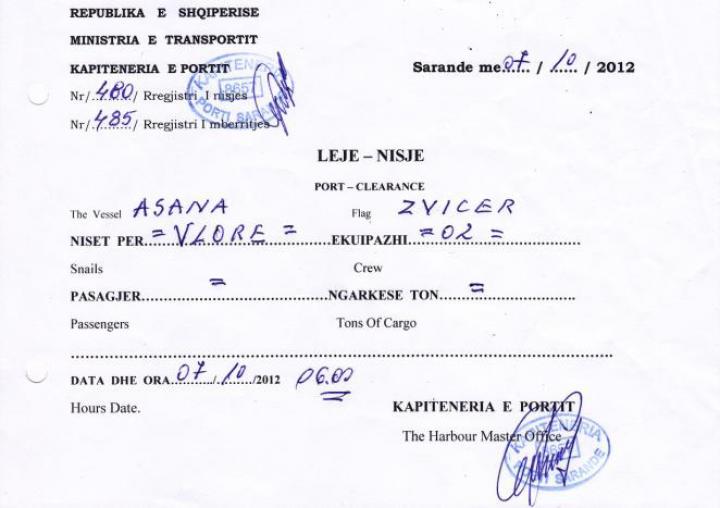 REPUBLIKA E SHQIPERISE
MINISTRIA E TRANSPORTIT
KAPITENERIA E PORTIT
Sarande me..07.. / .10.. / 2012
Nr/.480../ Rregjistri I nisjes
KAPITENERIA
8657
PORTI SARANDE
Nr/.485../ Rregjistri I mberritjes
LEJE – NISJE
PORT – CLEARANCE
The Vessel ASANA Flag ZVICER
NISET PER = VLORE = EKUIPAZHI = 02 =
Snails Crew
PASAGJER = NGARKESE TON =
Passengers Tons Of Cargo
DATA DHE ORA 07 / 10 /2012 06.00
Hours Date. KAPITENERIA E PORTIT
The Harbour Master Office
KAPITENERIA
PORTI SARANDE